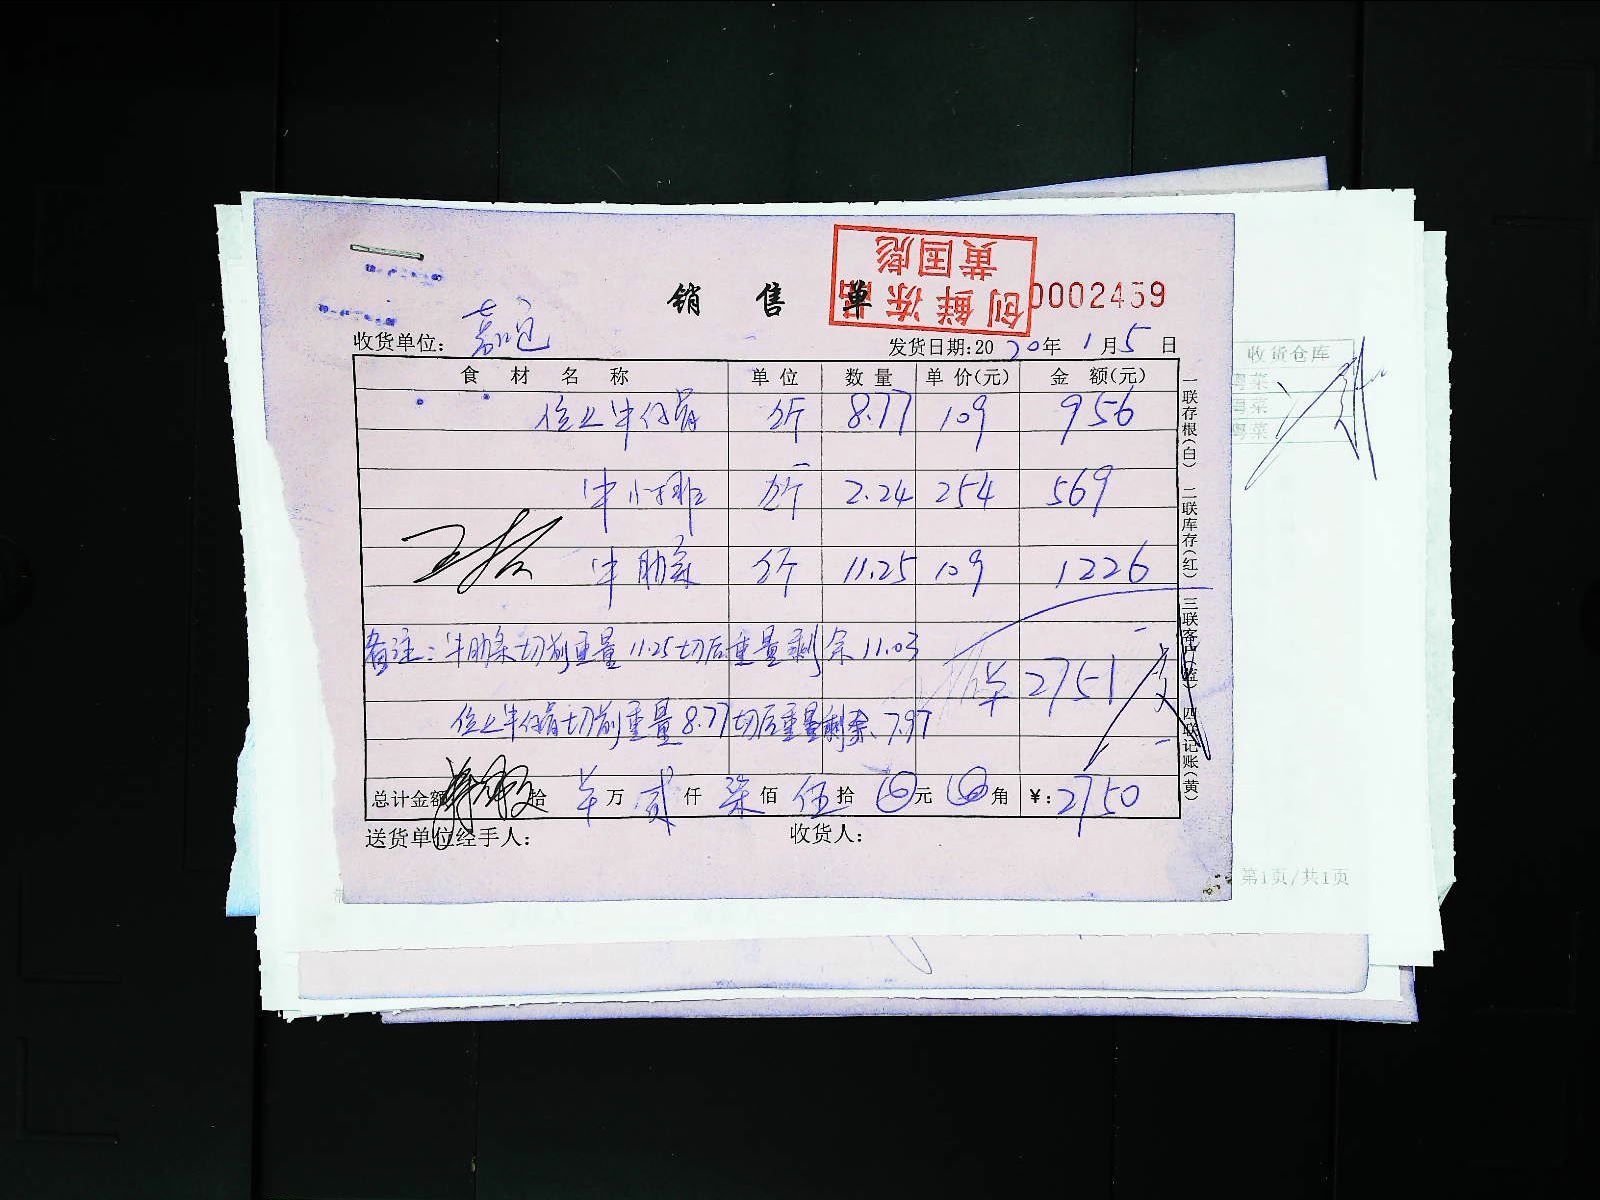 销 售 单
创鲜冻品
黄国彪
0002459
收货单位：
发货日期：2020年1月5日
食材名称 单位 数量 单价(元) 金额(元)
位上牛仔骨 公斤 8.77 109 956
牛小排 公斤 2.24 254 569
牛肋条 公斤 11.25 109 1226
备注：牛肋条切前重量11.25切后重量剩余11.03
2751
位上牛仔骨切前重量8.77切后重量剩余7.97
总计金额 拾 万 贰仟 柒佰 伍拾 元 角 ¥：2750
送货单位经手人： 收货人：
一联存根(白) 二联库存(红) 三联客户(蓝) 四联记账(黄)
收货仓库
粤菜
粤菜
粤菜
第1页/共1页